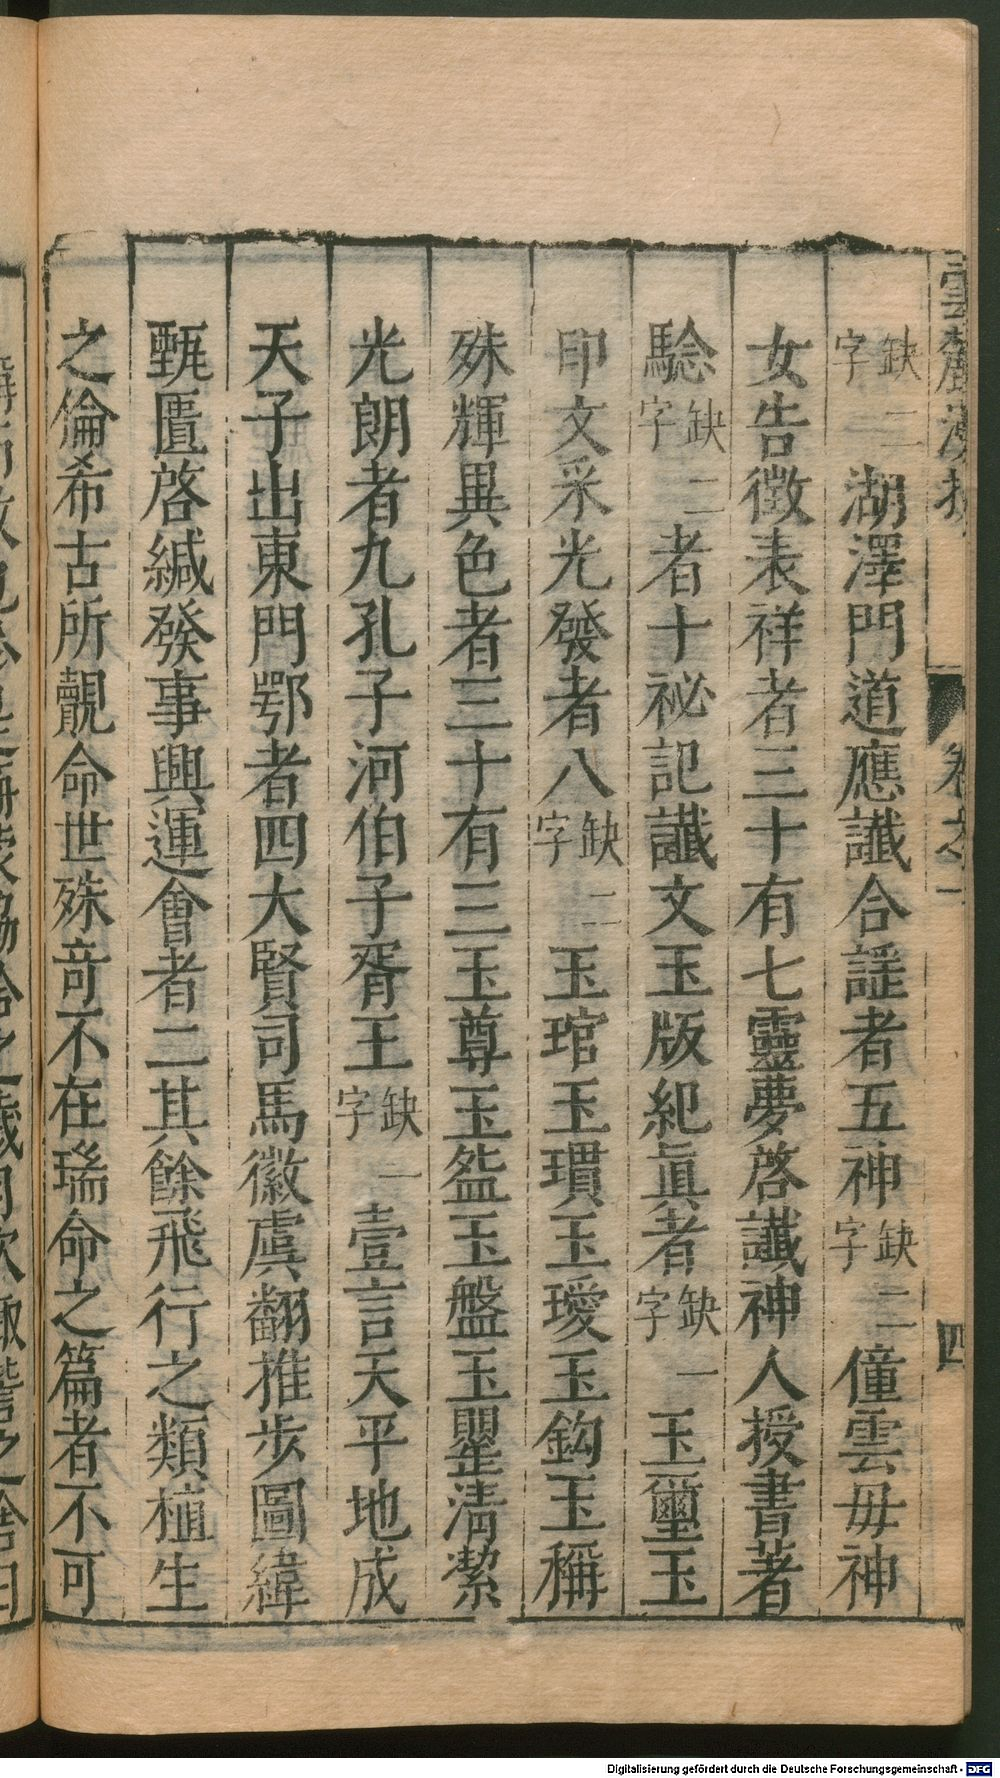 雲麓漫抄 卷之一 四
缺二字湖澤門道應讖合謡者五神缺二字僮雲毋神
女告徴表祥者三十有七靈夢啓讖神人授書著
驗缺二字者十祕記讖文玉版紀眞者缺一字玉璽玉
印文采光發者八缺二字玉琯玉瓊玉瑷玉鈎玉稱
殊輝異色者三十有三玉尊玉㿿玉盤玉罌淸潔
光朗者九孔子河伯子胥王缺一字壹言天平地成
天子出東門鄂者四大賢司馬徽虞翻推步圖緯
甄匱啓緘發事興運會者二其餘飛行之類植生
之倫希古所覿命世殊竒不在瑞命之篇者不可
Digitalisierung gefördert durch die Deutsche Forschungsgemeinschaft - DFG